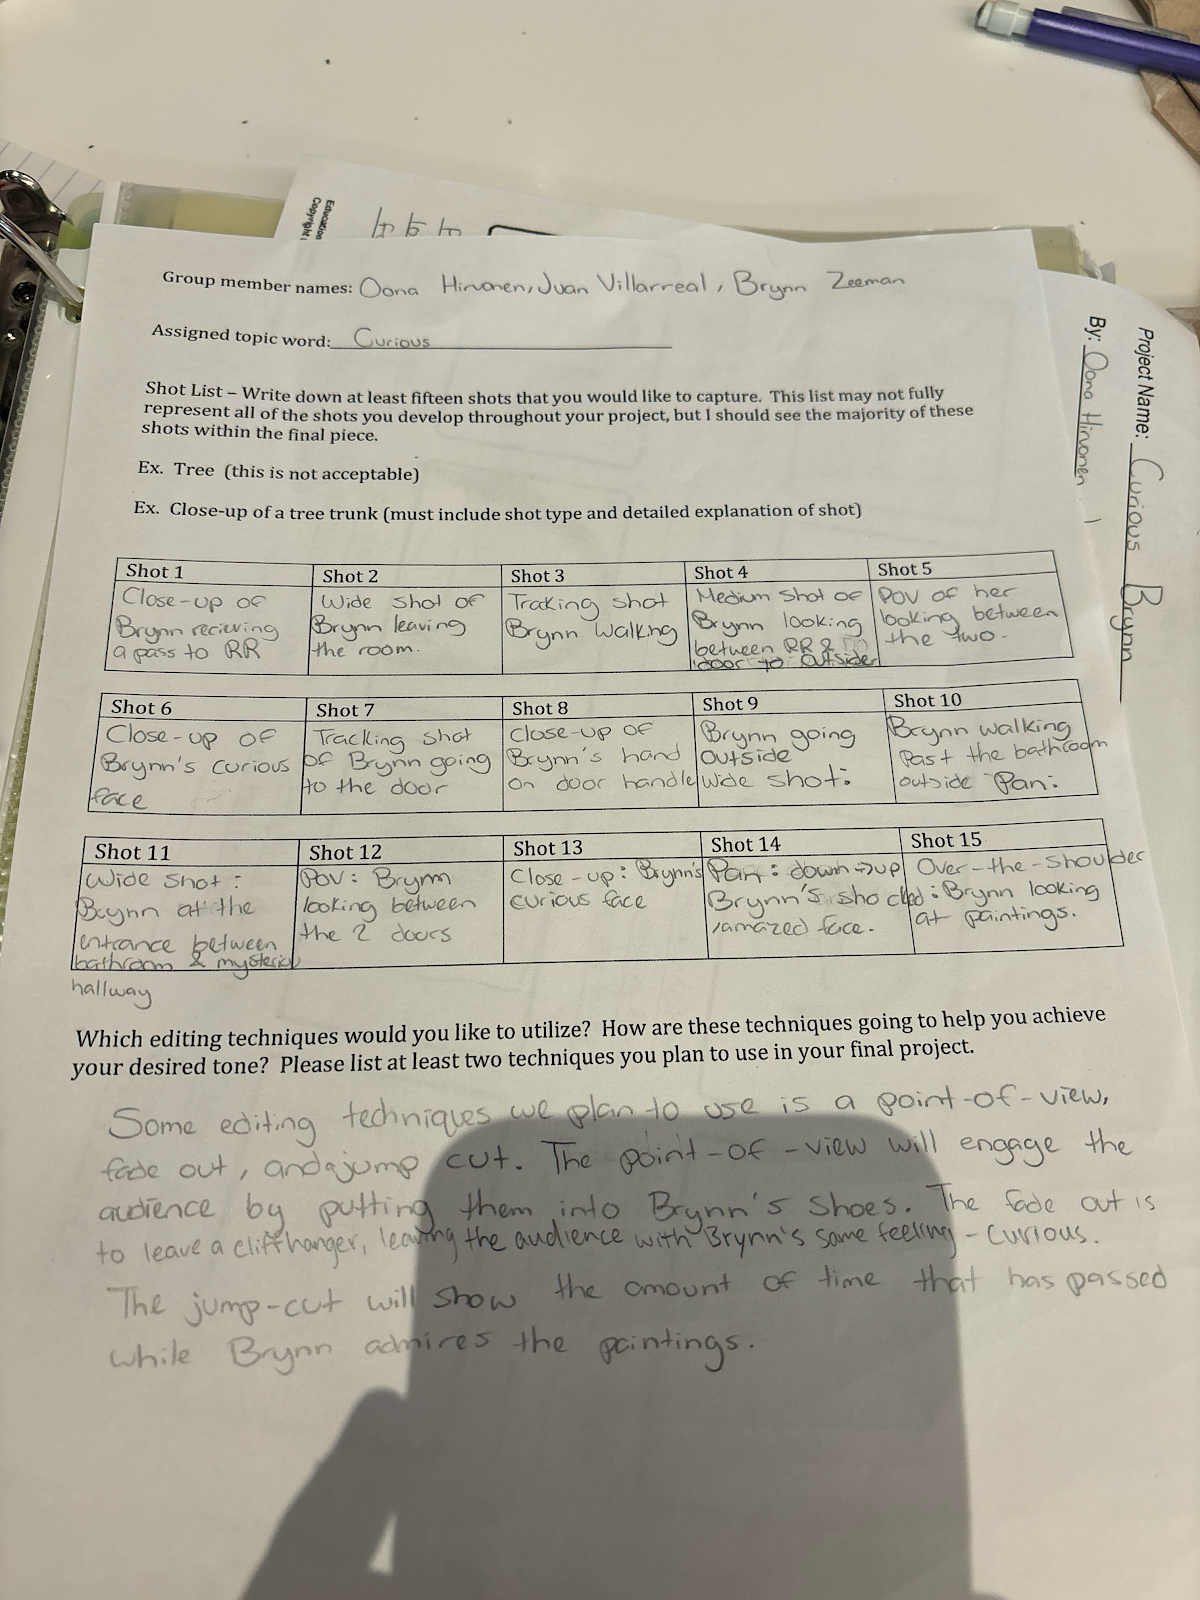 Education
Copyright
Group member names: Oona Hirvonen, Juan Villarreal, Brynn Zeeman
Assigned topic word: Curious
Shot List – Write down at least fifteen shots that you would like to capture. This list may not fully
represent all of the shots you develop throughout your project, but I should see the majority of these
shots within the final piece.
Ex. Tree (this is not acceptable)
Ex. Close-up of a tree trunk (must include shot type and detailed explanation of shot)
Shot 1
Close-up of
Brynn recieving
a pass to RR
Shot 2
Wide shot of
Brynn leaving
the room.
Shot 3
Tracking shot
Brynn walking
Shot 4
Medium shot of
Brynn looking
between RR &
door to outside
Shot 5
POV of her
looking between
the two.
Shot 6
Close-up of
Brynn's curious
face
Shot 7
Tracking shot
of Brynn going
to the door
Shot 8
Close-up of
Brynn's hand
on door handle
Shot 9
Brynn going
outside
Wide shot:
Shot 10
Brynn walking
Past the bathroom
outside Pan:
Shot 11
Wide shot:
Brynn at the
entrance between
bathroom & mysterious
hallway
Shot 12
POV: Brynn
looking between
the 2 doors
Shot 13
Close-up: Brynn's
curious face
Shot 14
Pan: down→up
Brynn's shocked
/amazed face.
Shot 15
Over-the-shoulder
: Brynn looking
at paintings.
Which editing techniques would you like to utilize? How are these techniques going to help you achieve
your desired tone? Please list at least two techniques you plan to use in your final project.
Some editing techniques we plan to use is a point-of-view,
fade out, and a jump cut. The point-of-view will engage the
audience by putting them into Brynn's shoes. The fade out is
to leave a cliffhanger, leaving the audience with Brynn's same feeling - curious.
The jump-cut will show the amount of time that has passed
while Brynn admires the paintings.
Project Name: Curious Brynn
By: Oona Hirvonen